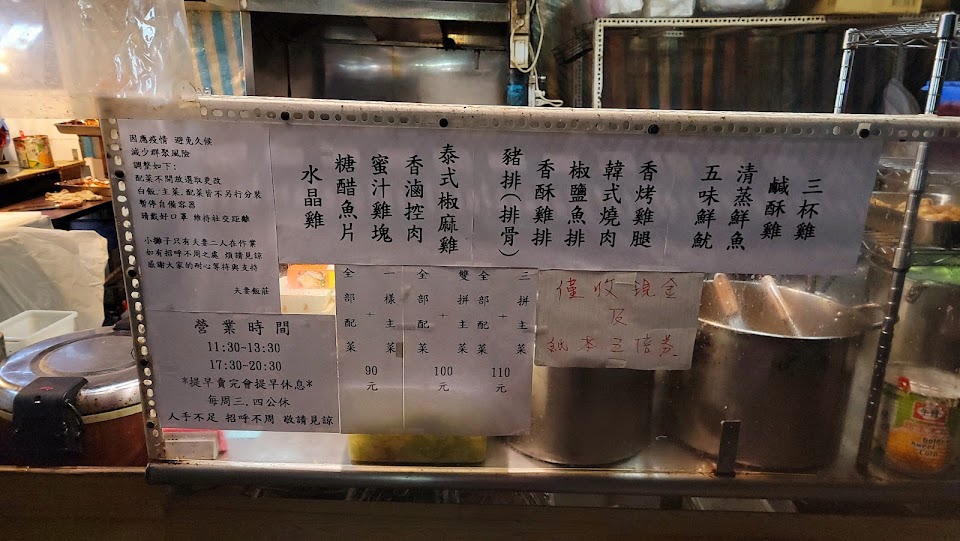 因應疫情 避免久候
減少群聚風險
調整如下:
配菜不開放選取更改
白飯.主菜.配菜皆不另行分裝
暫停自備容器
請戴好口罩 維持社交距離
小攤子只有夫妻二人在作業
如有招呼不周之處 煩請見諒
感謝大家的耐心等待與支持
夫妻飯莊
三杯雞
鹹酥雞
清蒸鮮魚
五味鮮魷
香烤雞腿
韓式燒肉
椒鹽魚排
香酥雞排
豬排(排骨)
泰式椒麻雞
香滷控肉
蜜汁雞塊
糖醋魚片
水晶雞
營業時間
11:30~13:30
17:30~20:30
*提早賣完會提早休息*
每周三.四公休
人手不足 招呼不周 敬請見諒
一樣主菜
+
全部配菜
90
元
雙拼主菜
+
全部配菜
100
元
三拼主菜
+
全部配菜
110
元
僅收現金
及
紙本五倍券